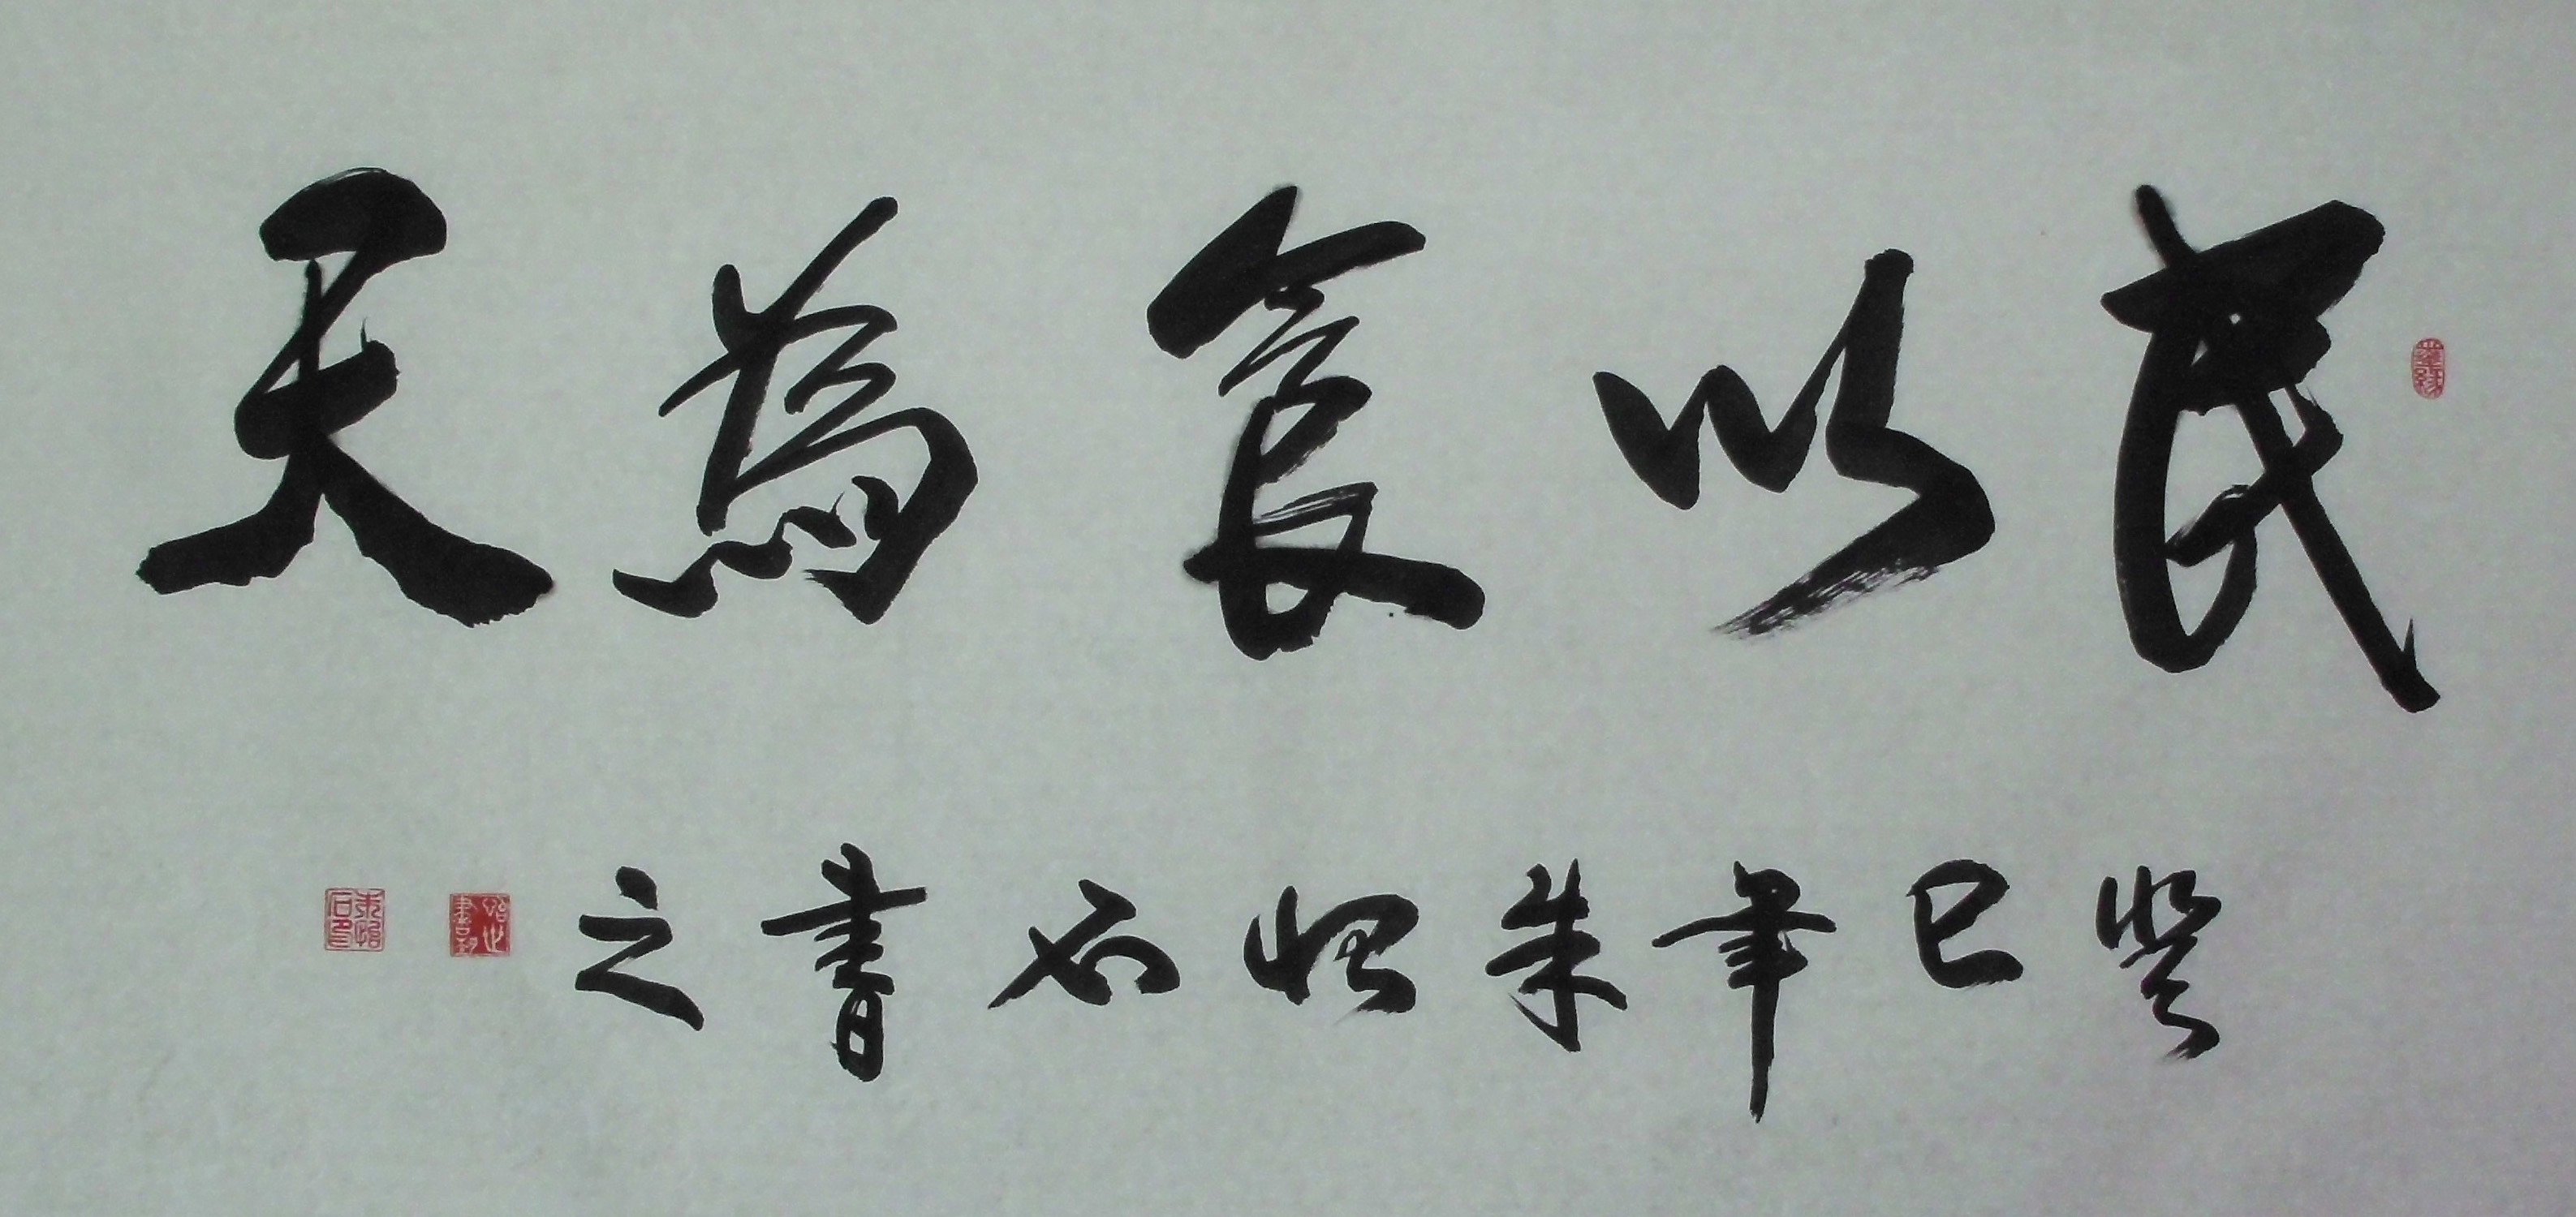 民以食為天
癸巳年朱怡石書之